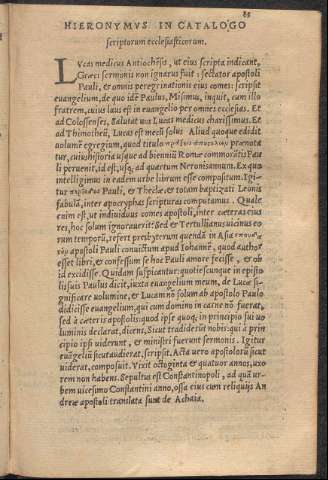 85
HIERONYMVS IN CATALOGO
scriptorum ecclesiasticorum.
LVcas medicus Antiochẽsis, ut eius scripta indicant,
Græci sermonis non ignarus fuit: sectator apostoli
Pauli, & omnis peregrinationis eius comes: scripsit
euangelium, de quo idẽ Paulus, Misimus, inquit, cum illo
fratrem, cuius laus est in euangelio per omnes ecclesias. Et
ad Colossenses, Salutat uos Lucas medicus charissimus. Et
ad Thimotheũ, Lucas est mecũ solus. Aliud quoque edidit
uolumẽ egregium, quod titulo πράξεις ἀποστόλων prænota
tur, cuius historia usque ad bienniũ Romæ commorãtis Pau
li peruenit, id est, usq; ad quartum Neronis annum. Ex quo
intelligimus in eadem urbe librum esse compositum. Igi
tur περιόδους Pauli, & Theclæ, et totam baptizati Leonis
fabulã, inter apocryphas scripturas computamus. Quale
enim est, ut indiuiduus comes apostoli, inter cæteras eius
res, hoc solum ignorauerit: Sed & Tertullianus uicinus eo
rum temporũ, refert presbyterum quendã in Asia
apostoli Pauli conuictum apud Iohannẽ, quod author
esset libri, & confessum se hoc Pauli amore fecisse, & ob
id excidisse. Quidam suspicantur: quotiescunque in episto
lis suis Paulus dicit, iuxta euangelium meum, de Lucæ si-
gnificare uolumine, & Lucam nõ solum ab apostolo Paulo
didicisse euangelium, qui cum domino in carne nõ fuerat,
sed à cæteris apostolis: quod ipse quoq; in principio sui uo
luminis declarat, dicens, Sicut tradiderũt nobis: qui à prin
cipio ipsi uiderunt, & ministri fuerunt sermonis. Igitur
euãgeliũ sicut audierat, scripsit. Acta uero apostolorũ sicut
uiderat, composuit. Vixit octoginta & quatuor annos, uxo
rem non habens. Sepultus est Constantinopoli, ad quã ur-
bem uicesimo Constantini anno, ossa eius cum reliquijs An
dreæ apostoli translata sunt de Achaia.